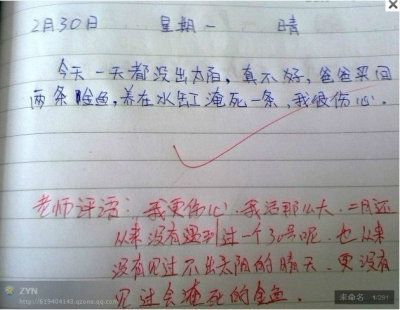 2月30日 星期一 晴
今天一天都没出太阳，真不好，爸爸买回
两条金鱼，养在水缸淹死一条，我很伤心。
老师评语：我更伤心．我活那么大．二月还
从来没有遇到过一个30号呢．也从来
没有见过不出太阳的晴天．更没有
见过会淹死的金鱼．
ZYN
http://619404143.qzone.qq.com
未命名 1/291